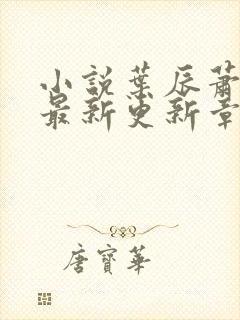 小說葉辰蕭
最新更新章
唐寶華